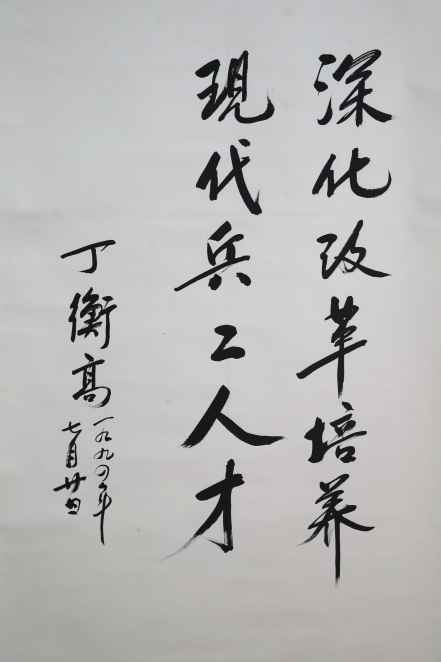 深化改革培养
現代兵工人才
丁衡高
一九九四年
七月廿日